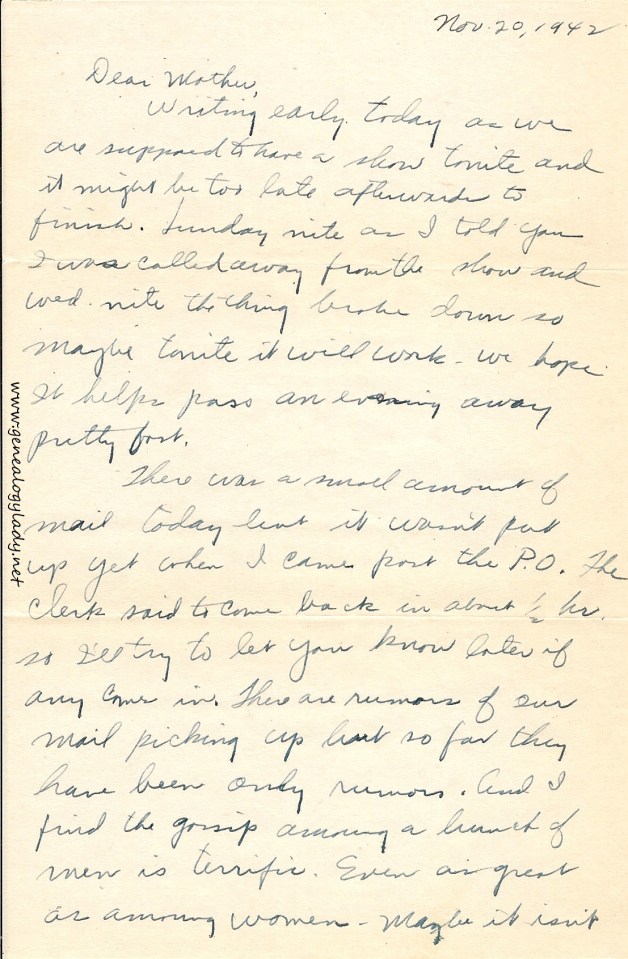 Nov. 20, 1942
Dear Mother,
Writing early today as we
are supposed to have a show tonite and
it might be too late afterwards to
finish. Sunday nite as I told you
I was called away from the show and
wed. nite the thing broke down so
maybe tonite it will work - we hope
It helps pass an evening away
pretty fast.
There was a small amount of
mail today but it wasn't put
up yet when I came past the P.O. The
Clerk said to come back in about ½ hr.
so I'll try to let you know later if
any comes in. There are rumors of our
mail picking up but so far they
have been only rumors. And I
find the gossip among a bunch of
men is terrific. Even as great
as among women - Maybe it isn't
www.genealogylady.net